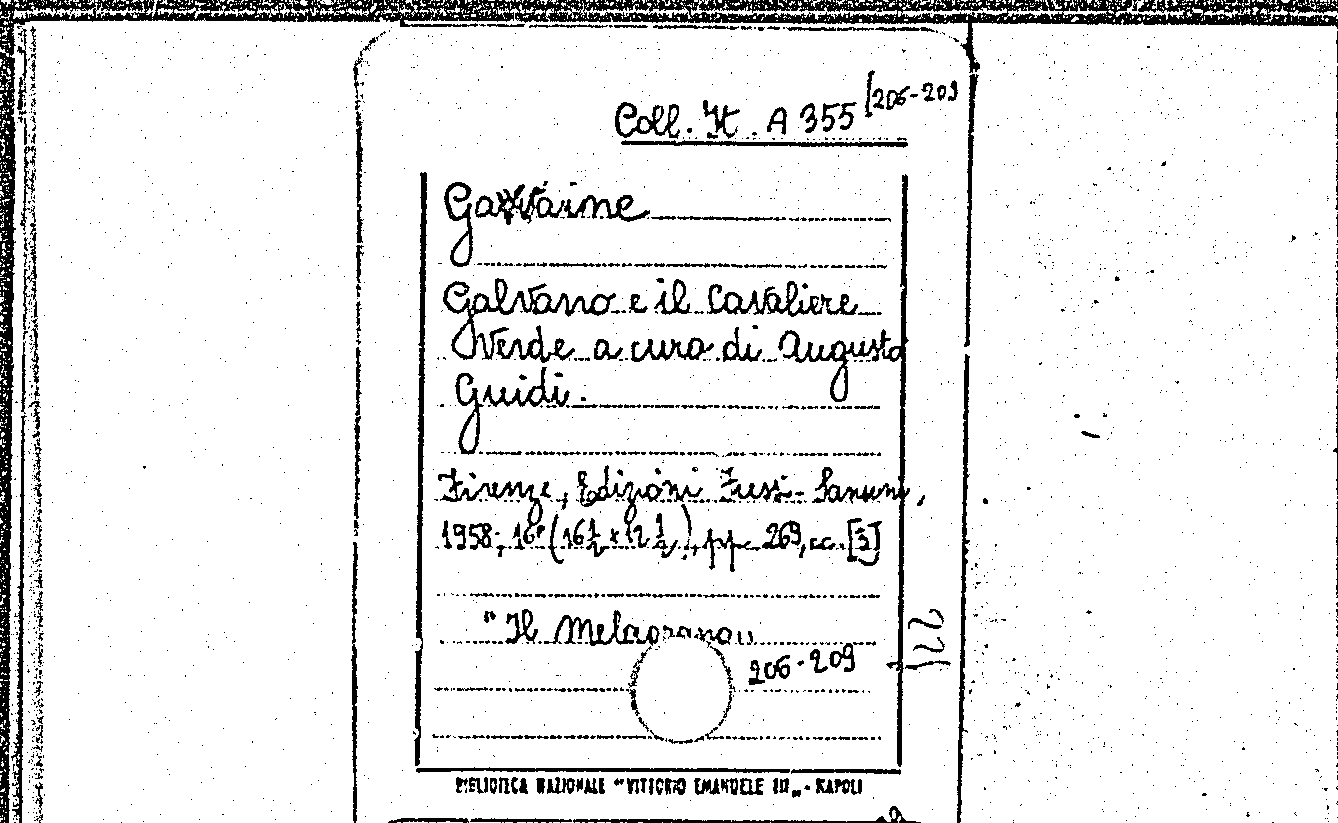 Coll. It. A 355 [206-209
Gawaine
Galvano e il Cavaliere
Verde a cura di Augusto
Guidi.
Firenze, Edizioni Fussi-Sansoni,
1958; 16° (16½ x 12½), pp. 269, cc. [3]
"Il Melagrano"
206-209
221
BIBLIOTECA NAZIONALE "VITTORIO EMANUELE III" - NAPOLI